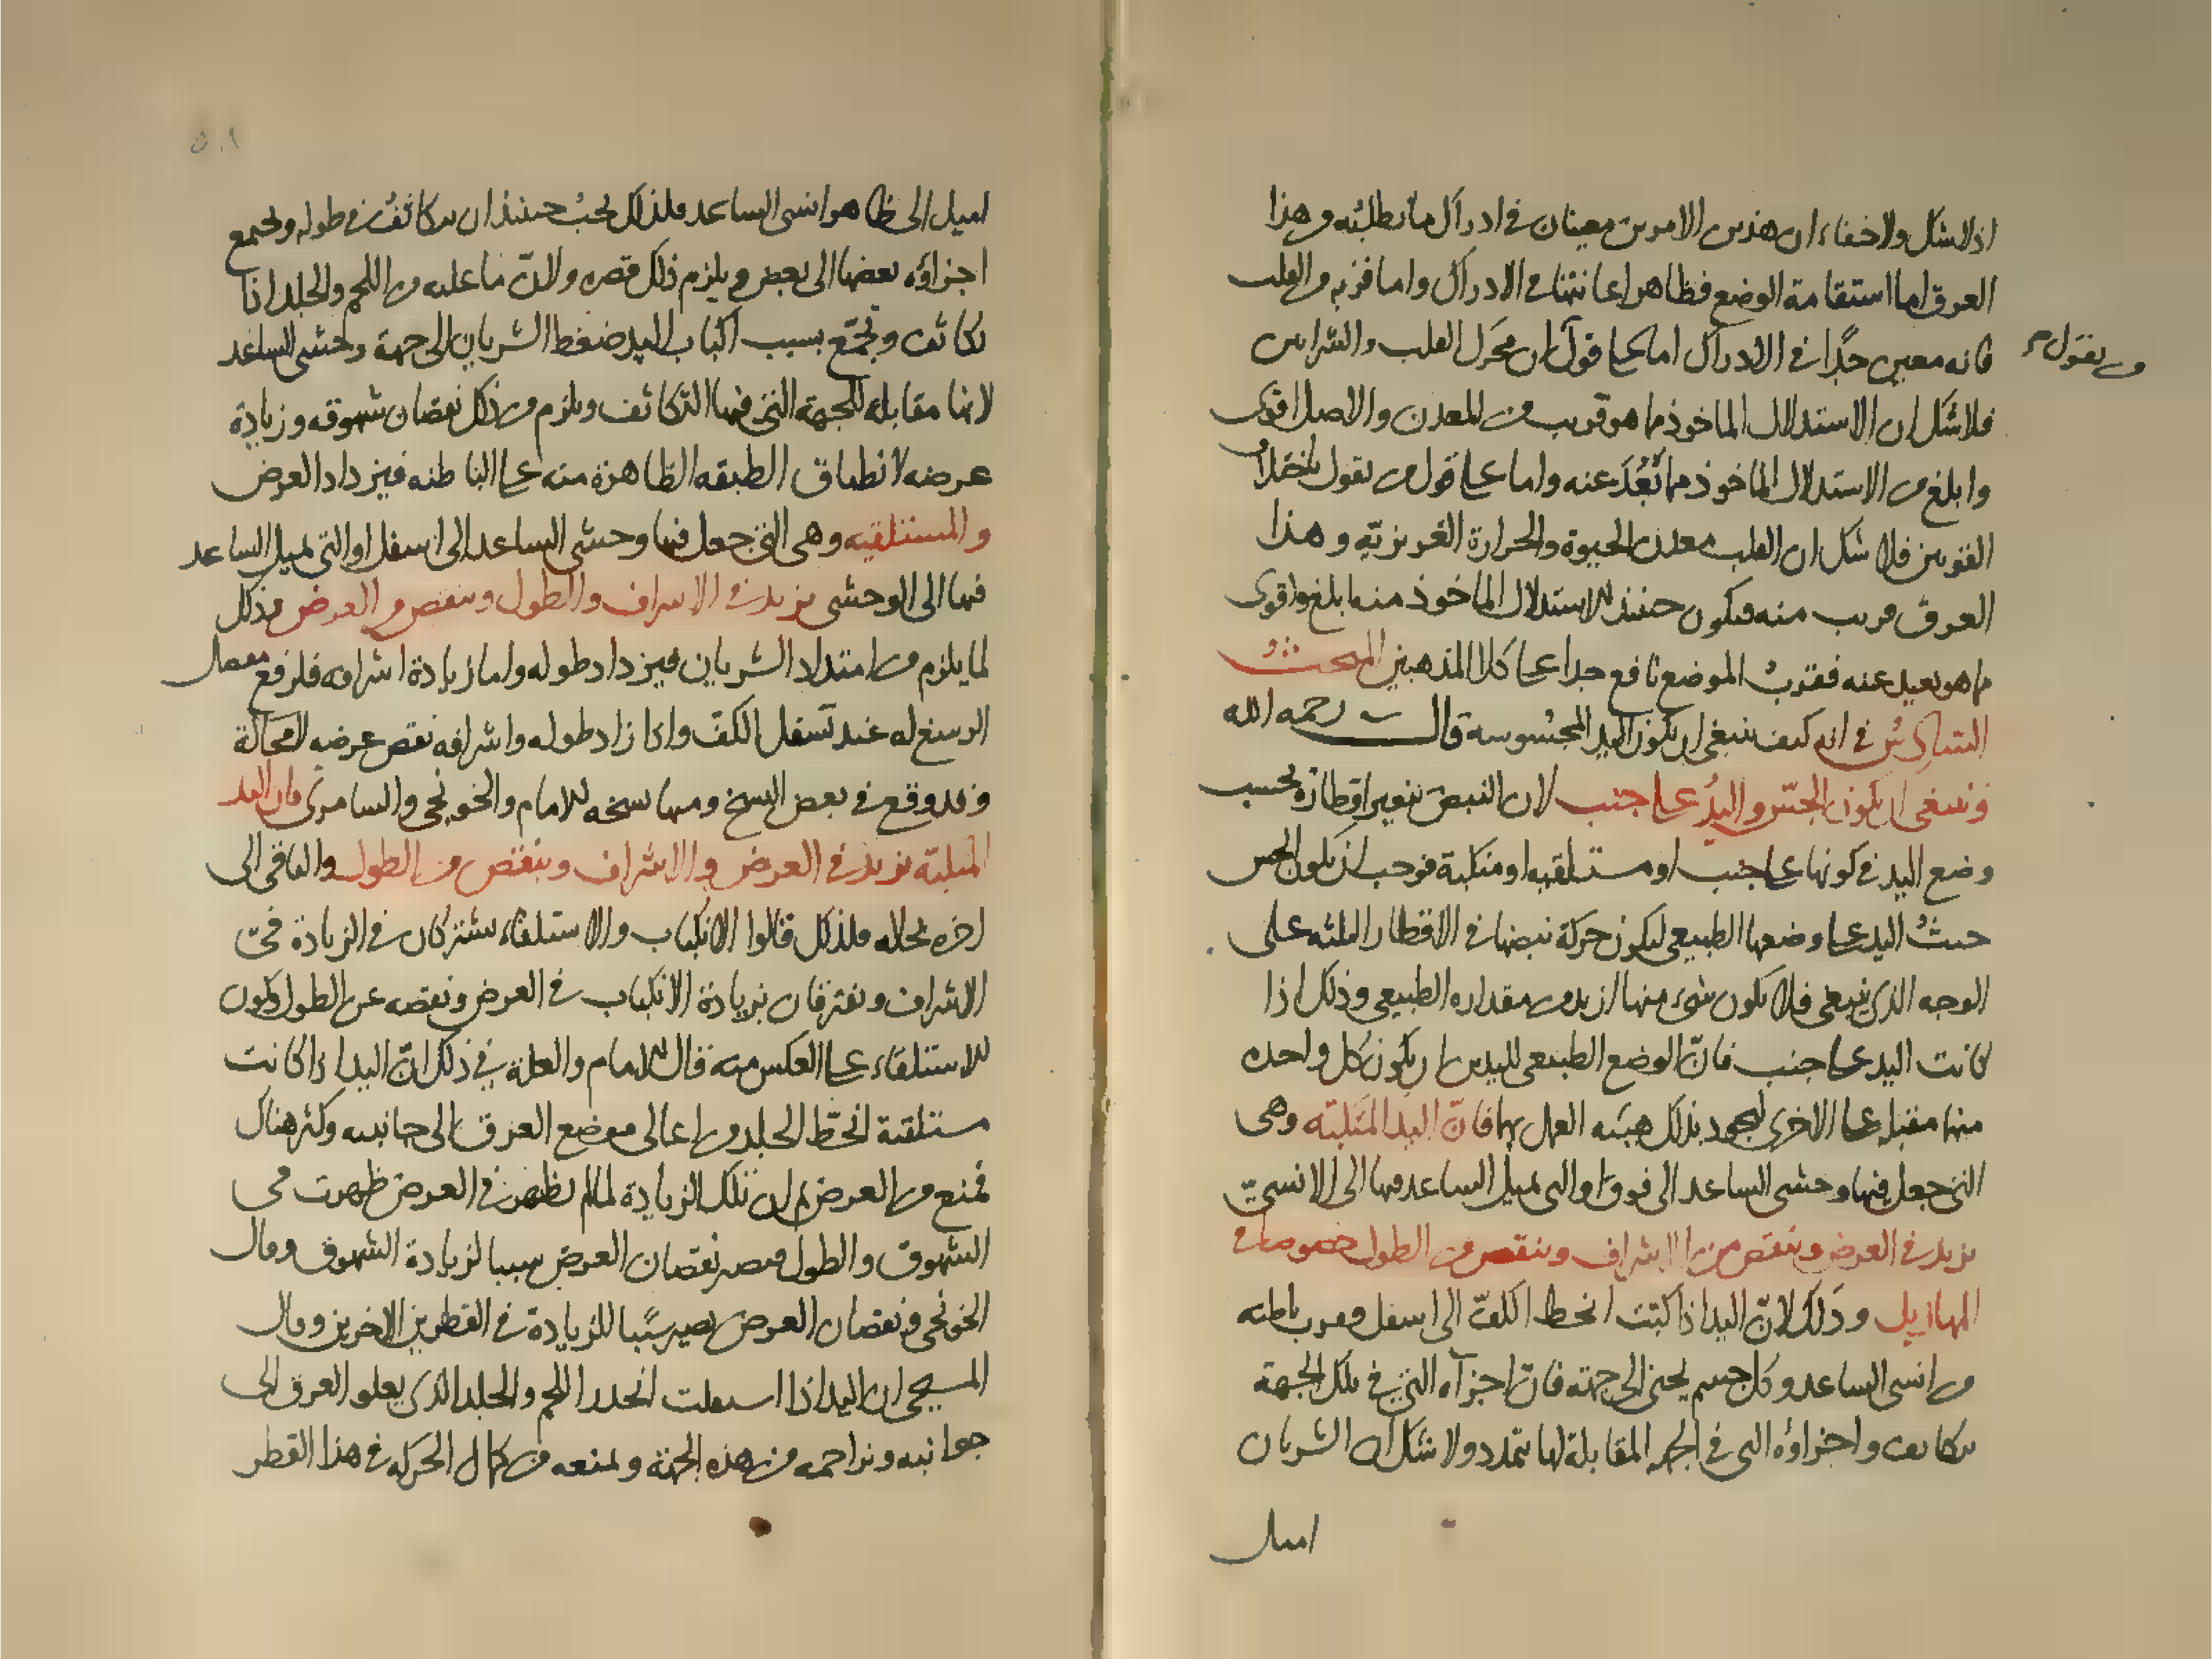 اذ لا شك ولا خفاء ان هذين الامرين معينان في ادراك ما نطلبه وهذا
العرق اما استقامة الوضع فظاهر اعانتها في الادراك واما قربه من القلب
فانه معين جدا في الادراك اما على قول ان محرك القلب والشرايين
من يقول
فلا شك ان الاستدلال الماخوذ مما هو قريب من المعدن والاصل اقوى
وابلغ من الاستدلال الماخوذ مما تبعد عنه واما على قول من يقول باختلاف
القوتين فلا شك ان القلب معدن الحيوة والحرارة الغريزية وهذا
العرق قريب منه فيكون حينئذ الاستدلال الماخوذ منه ابلغ واقوى
مما هو بعيد عنه فقرب الموضع نافع جدا على كلا المذهبين المبحث
السادس في انه كيف ينبغي ان يكون اليد المجسوسة قال رحمه الله
وينبغي ان يكون الجس واليد على جنب لان النبض يتغير اقطاره بحسب
وضع اليد في كونها على جنب او مستلقية او منكبة فوجب ان يكون الجس
حيث اليد على وضعها الطبيعي ليكون حركة نبضها في الاقطار الثلثه على
الوجه الذي ينبغي فلا يكون شيء منها ازيد من مقداره الطبيعي وذلك اذا
كانت اليد على جنب فان الوضع الطبيعي لليدين ان يكون كل واحده
منها مقبله على الاخرى ليجود بذلك هيئه العمل بها فان اليد المتكبة وهي
التي جعل فيها وحشي الساعد الى فوق او التي يميل الساعد فيها الى الانسي
يزيد في العرض وينقص من الاشراف وينقص من الطول خصوصا في
المهازيل وذلك لان اليد اذا كبت انحط الكف الى اسفل وقرب باطنه
من انسي الساعد وكل جسم يحنى الى جهة فان اجزآه التي في تلك الجهة
يتكاثف واجزاؤه التي في الجهه المقابلة لها يتمدد ولا شك ان الشريان
اميل
اميل الى ظاهر انسي الساعد فلذلك يجب حينئذ ان يتكاثف في طوله ويجتمع
اجزاؤه بعضها الى بعض ويلزم ذلك قصره ولان ما عليه من اللحم والجلد اذا
تكاثف وتجمع بسبب اكباب اليد ضغط الشريان الى جهة وحشي الساعد
لانها مقابلة للجهة التي فيها التكاثف ويلزم من ذلك نقصان شهوقه وزيادة
عرضه لانطباق الطبقه الظاهرة منه على الباطنه فيزداد العرض
والمستلقيه وهي التي جعل فيها وحشي الساعد الى اسفل او التي يميل الساعد
فيها الى الوحشي يزيد في الاشراف والطول وينقص من العرض وذلك
لما يلزم من امتداد الشريان فيزداد طوله واما زيادة اشرافه فلرفع مفصل
الرسغ له عند تسفل الكف واذا زاد طوله واشرافه نقص عرضه لا محالة
وقد وقع في بعض النسخ ومنها نسخه الامام والخونجي والسامري فان اليد
المكبة يزيد في العرض والاشراف وينقص من الطول والباقي الى
اخره بحلاله فلذلك قالوا الانكباب والاستلقاء يشتركان في الزيادة في
الاشراف ويفترقان بزيادة الانكباب في العرض ونقصه عن الطول ويكون
الاستلقاء على العكس منه قال الامام والعلة في ذلك ان اليد اذا كانت
مستلقية انحط الجلد من اعالي موضع العرق الى جانبيه وكثر هناك
فمنع من العرض ثم ان تلك الزيادة لما لم تظهر في العرض ظهرت في
الشهوق والطول فيصير نقصان العرض سببا لزيادة الشهوق وقال
الخونجي ونقصان العرض يصير سببا للزيادة في القطرين الاخرين وقال
المسيحي ان اليد اذا استلقت انحدر اللحم والجلد الذي يعلو العرق الى
جوانبه ويزاحمه من هذه الجهة ويمنعه من كمال الحركه في هذا القطر